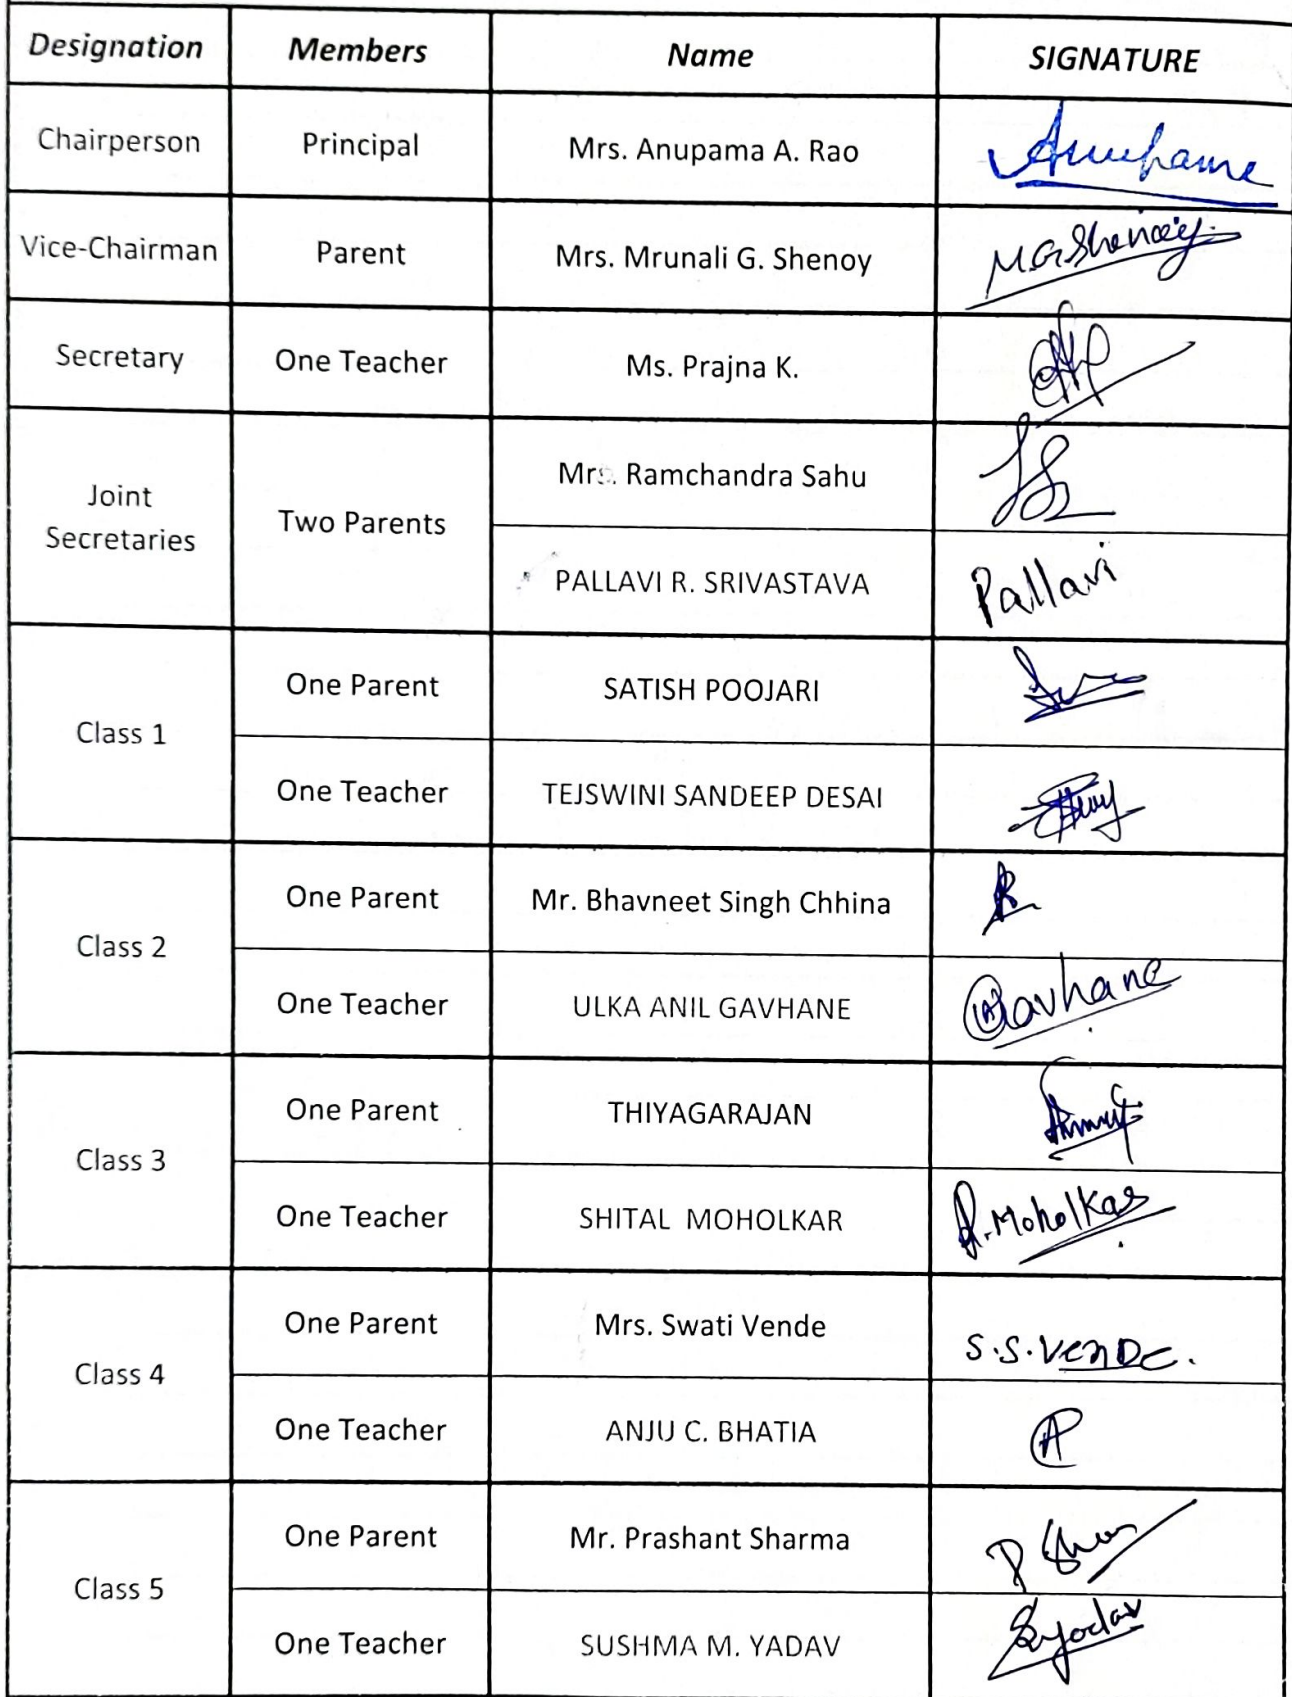 Designation Members Name SIGNATURE
Chairperson Principal Mrs. Anupama A. Rao Anupama
Vice-Chairman Parent Mrs. Mrunali G. Shenoy M.G.Shenoy
Secretary One Teacher Ms. Prajna K.
Joint Secretaries Two Parents Mrs. Ramchandra Sahu
PALLAVI R. SRIVASTAVA Pallavi
Class 1 One Parent SATISH POOJARI
One Teacher TEJSWINI SANDEEP DESAI
Class 2 One Parent Mr. Bhavneet Singh Chhina
One Teacher ULKA ANIL GAVHANE Gavhane
Class 3 One Parent THIYAGARAJAN
One Teacher SHITAL MOHOLKAR S.Moholkar
Class 4 One Parent Mrs. Swati Vende S.S.VENDE.
One Teacher ANJU C. BHATIA
Class 5 One Parent Mr. Prashant Sharma
One Teacher SUSHMA M. YADAV SYadav